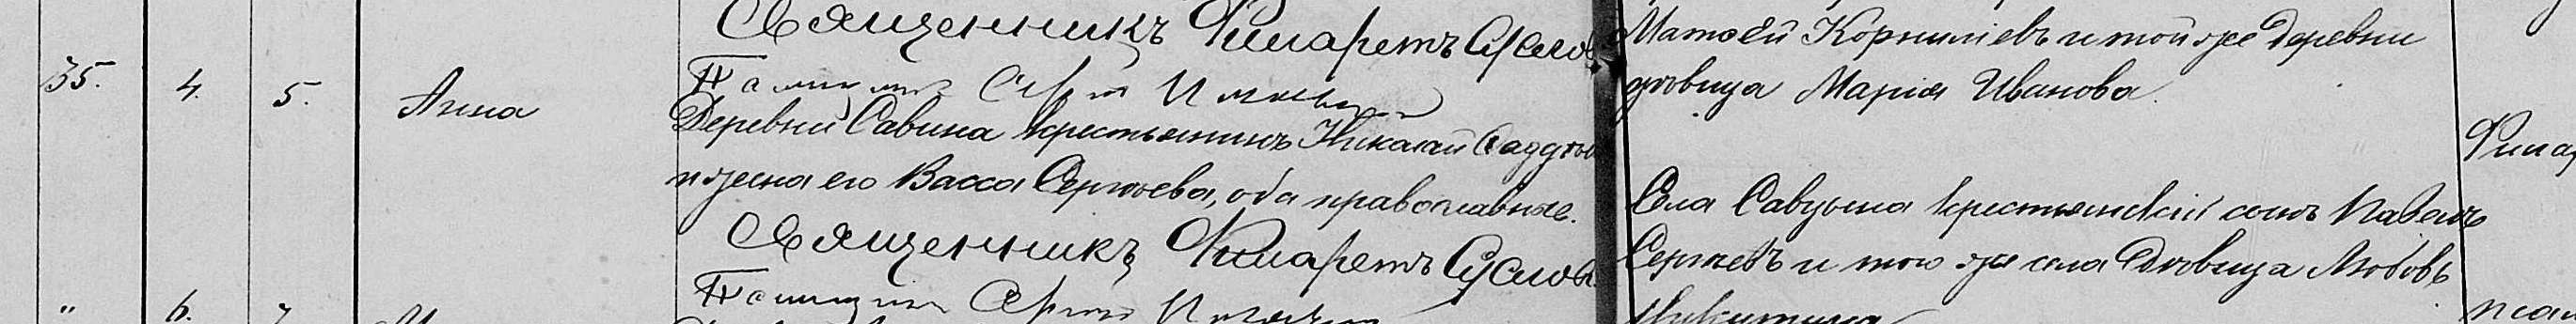 Священникъ Филаретъ Суслов
Псаломщикъ Сергій
Матѳей Корниліевъ и той же деревни
дѣвица Марія Иванова.
35. 4. 5. Анна
Деревни Савина крестьянинъ Николай Фаддѣев
и жена его Васса Сергѣева, оба православные.
Священникъ Филаретъ Суслов
Псаломщикъ Сергій
Села крестьянскій сынъ Павелъ
Сергѣевъ и того же села дѣвица Любовь
Никитина
Фила
" 6. 7